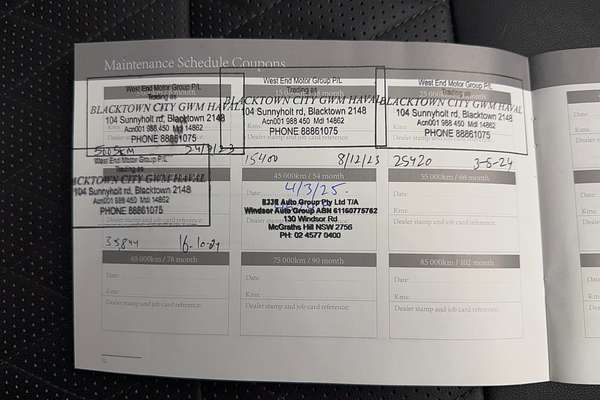 Maintenance Schedule Coupons
West End Motor Group P/L
Trading as
BLACKTOWN CITY GWM HAVAL
104 Sunnyholt rd, Blacktown 2148
Acn001 988 450 Mdl 14862
PHONE 88861075
West End Motor Group P/L
Trading as
BLACKTOWN CITY GWM HAVAL
104 Sunnyholt rd, Blacktown 2148
Acn001 988 450 Mdl 14862
PHONE 88861075
West End Motor Group P/L
Trading as
BLACKTOWN CITY GWM HAVAL
104 Sunnyholt rd, Blacktown 2148
Acn001 988 450 Mdl 14862
PHONE 88861075
15400 8/12/23
25420 3-5-24
West End Motor Group P/L
Trading as
BLACKTOWN CITY GWM HAVAL
104 Sunnyholt rd, Blacktown 2148
Acn001 988 450 Mdl 14862
PHONE 88861075
Dealer stamp and job card reference:
45 000km / 54 month
4/3/25.
Auto Group Pty Ltd T/A
Windsor Auto Group ABN 61160775762
130 Windsor Rd
McGraths Hill NSW 2756
PH: 02 4577 0400
55 000km / 66 month
Date:
Kms:
Dealer stamp and job card reference:
65 000km / 78 month
Date:
Kms:
Dealer stamp and job card reference:
75 000km / 90 month
Date:
Kms:
Dealer stamp and job card reference:
85 000km / 102 month
Date:
Kms:
Dealer stamp and job card reference: